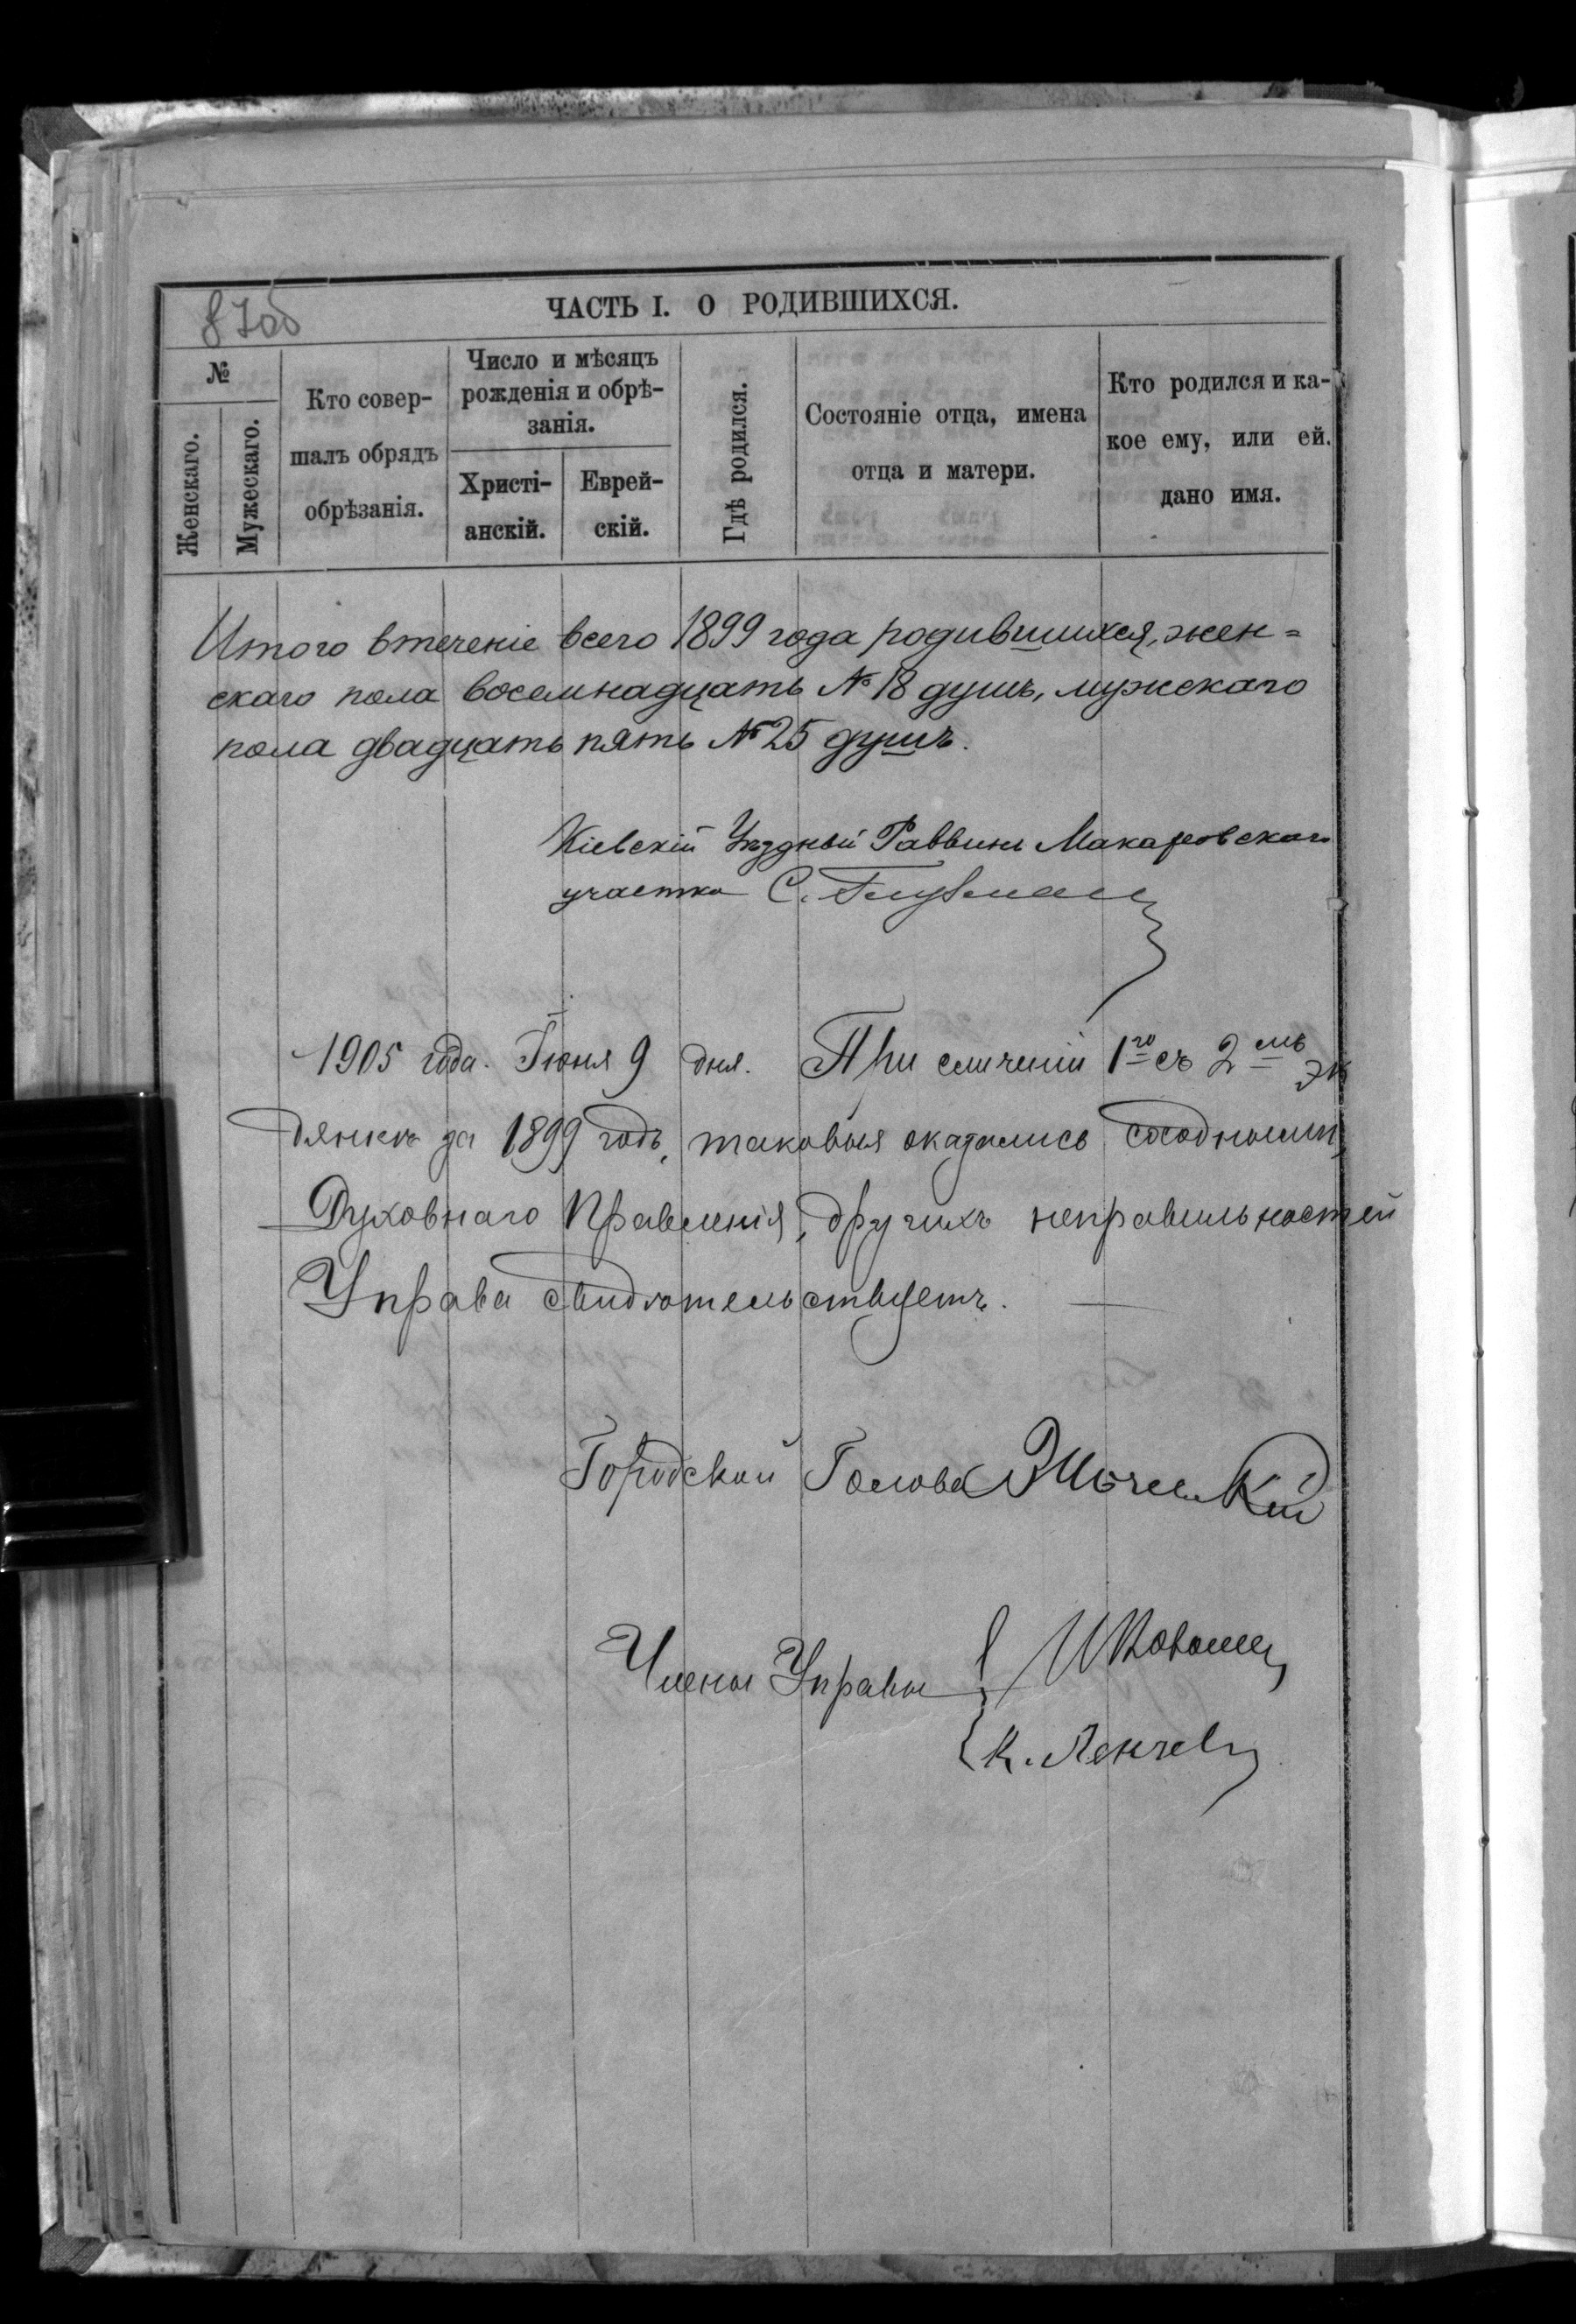 870б
ЧАСТЬ I. О РОДИВШИХСЯ.
№
Женскаго.
Мужескаго.
Кто совер-
шалъ обрядъ
обрѣзанія.
Число и мѣсяцъ
рожденія и обрѣ-
занія.
Христі-
анскій.
Еврей-
скій.
Гдѣ родился.
Состояніе отца, имена
отца и матери.
Кто родился и ка-
кое ему, или ей.
дано имя.
Итого втеченіе всего 1899 года родившихся, жен=
скаго пола восемнадцать № 18 душъ, мужскаго
пола двадцать пять № 25 душъ.
Кіевскій Уѣздный Раввинъ Макаровскаго
участка С.
1905 года. Іюня 9 дня. При сличеніи 1го съ 2мъ эк
за 1899 годъ, таковыя оказались сходными,
Духовнаго Правленія, другихъ неправильностей
Управа свидѣтельствуетъ.
Городской Голова
Члены Управы
К.